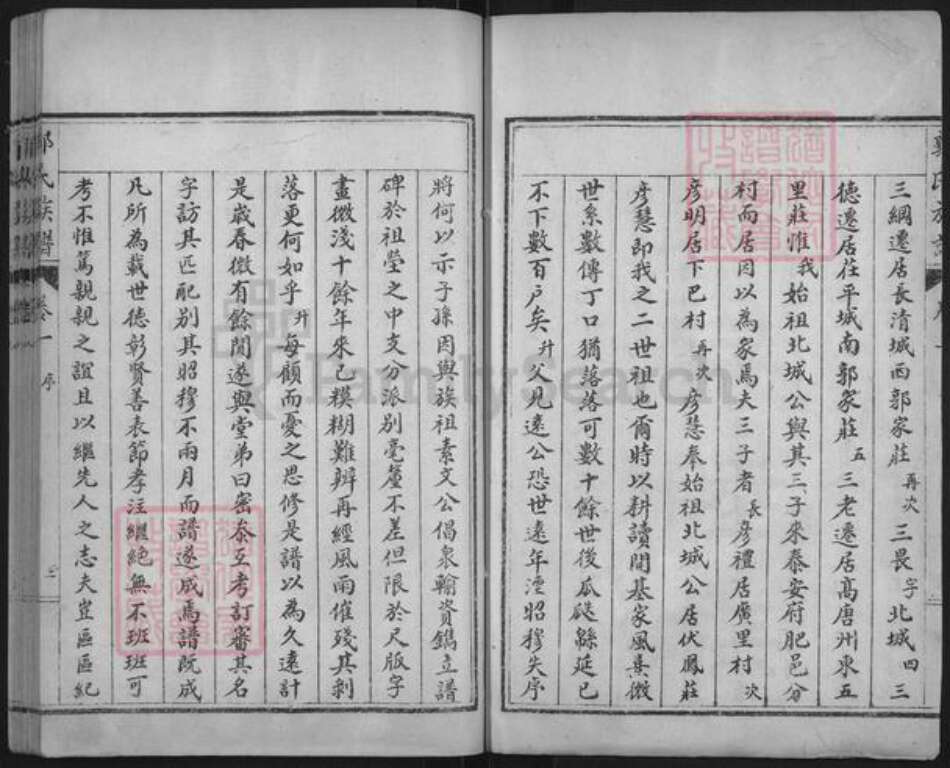 三綱遷居長清城西郭家莊再次三畏字北城四三
德遷居茌平城南郭家莊五三老遷居高唐州東五
里莊惟我始祖北城公與其三子來泰安府肥邑分
村而居因以為家焉夫三子者長彥禮居廣里村次
彥明居下巴村再次彥慧奉始祖北城公居伏鳳莊
彥慧即我之二世祖也爾時以耕讀開基家風熹微
世系數傳丁口猶落落可數十餘世後瓜瓞緜延已
不下數百戶矣升父見遠公恐世遠年湮昭穆失序
將何以示子孫因與族祖素文公倡衆輸資鐫立譜
碑於祖塋之中支分派別毫釐不差但限於尺版字
畫微淺十餘年來已糢糊難辨再經風雨催殘其剥
落更何如乎升每顧而憂之思修是譜以為久遠計
是歲春微有餘閒遂與堂弟曰密叅互考訂審其名
字訪其匹配別其昭穆不兩月而譜遂成焉譜既成
凡所為載世德彰賢善表節孝注繼絕無不班班可
考不惟篤親親之誼且以繼先人之志夫豈區區紀
氏族譜 卷一 序 二
FamilySearch